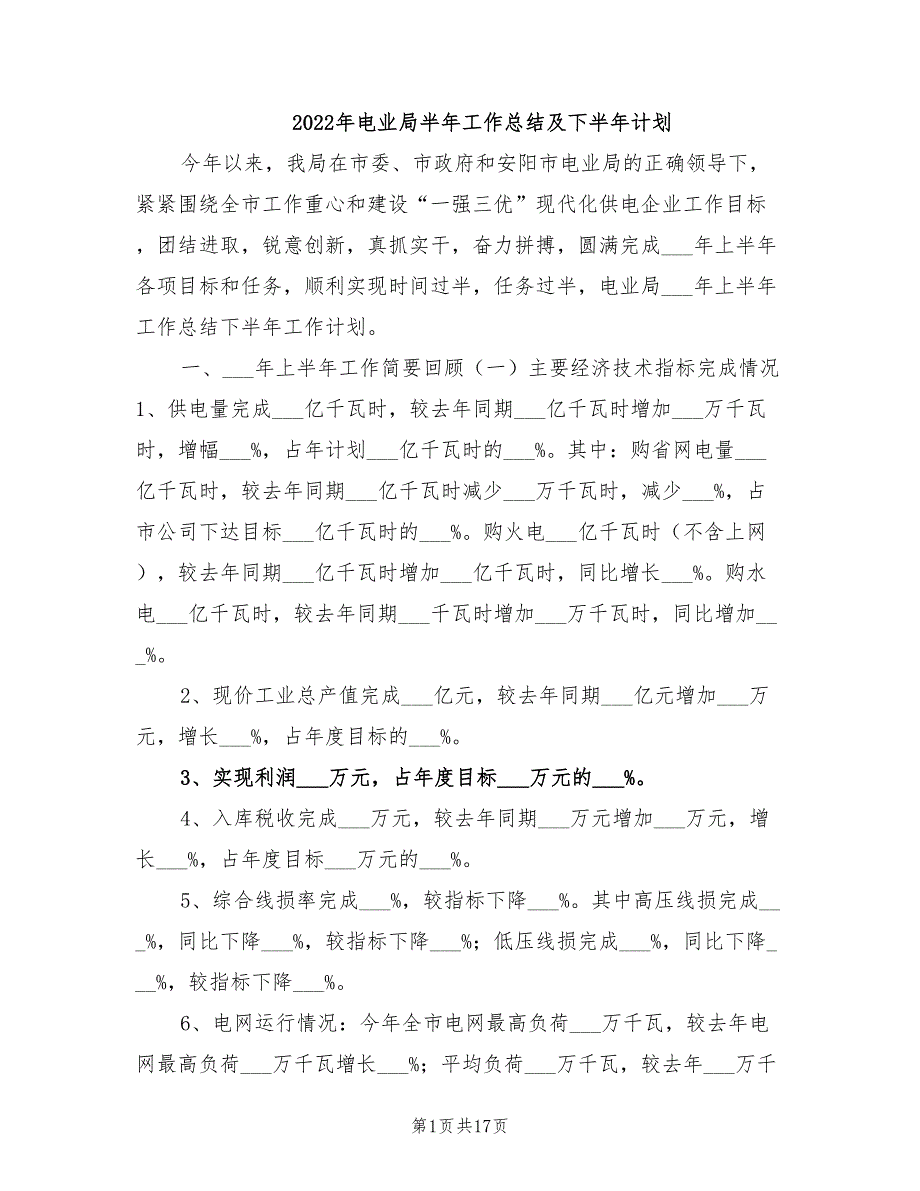 2022年电业局半年工作总结及下半年计划
今年以来，我局在市委、市政府和安阳市电业局的正确领导下，
紧紧围绕全市工作重心和建设“一强三优”现代化供电企业工作目标
，团结进取，锐意创新，真抓实干，奋力拼搏，圆满完成___年上半年
各项目标和任务，顺利实现时间过半，任务过半，电业局___年上半年
工作总结下半年工作计划。
一、___年上半年工作简要回顾（一）主要经济技术指标完成情况
1、供电量完成___亿千瓦时，较去年同期___亿千瓦时增加___万千瓦
时，增幅___%，占年计划___亿千瓦时的___%。其中：购省网电量___
亿千瓦时，较去年同期___亿千瓦时减少___万千瓦时，减少___%，占
市公司下达目标___亿千瓦时的___%。购火电___亿千瓦时（不含上网
），较去年同期___亿千瓦时增加___亿千瓦时，同比增长___%。购水
电___亿千瓦时，较去年同期___千瓦时增加___万千瓦时，同比增加__
_%。
2、现价工业总产值完成___亿元，较去年同期___亿元增加___万
元，增长___%，占年度目标的___%。
3、实现利润___万元，占年度目标___万元的___%。
4、入库税收完成___万元，较去年同期___万元增加___万元，增
长___%，占年度目标___万元的___%。
5、综合线损率完成___%，较指标下降___%。其中高压线损完成__
_%，同比下降___%，较指标下降___%；低压线损完成___%，同比下降_
__%，较指标下降___%。
6、电网运行情况：今年全市电网最高负荷___万千瓦，较去年电
网最高负荷___万千瓦增长___%；平均负荷___万千瓦，较去年___万千
第1页共17页